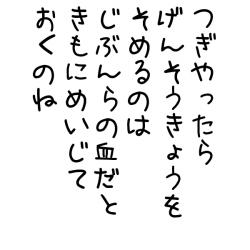 つぎやったら
げんそうきょうを
そめるのは
じぶんらの血だと
きもにめいじて
おくのね